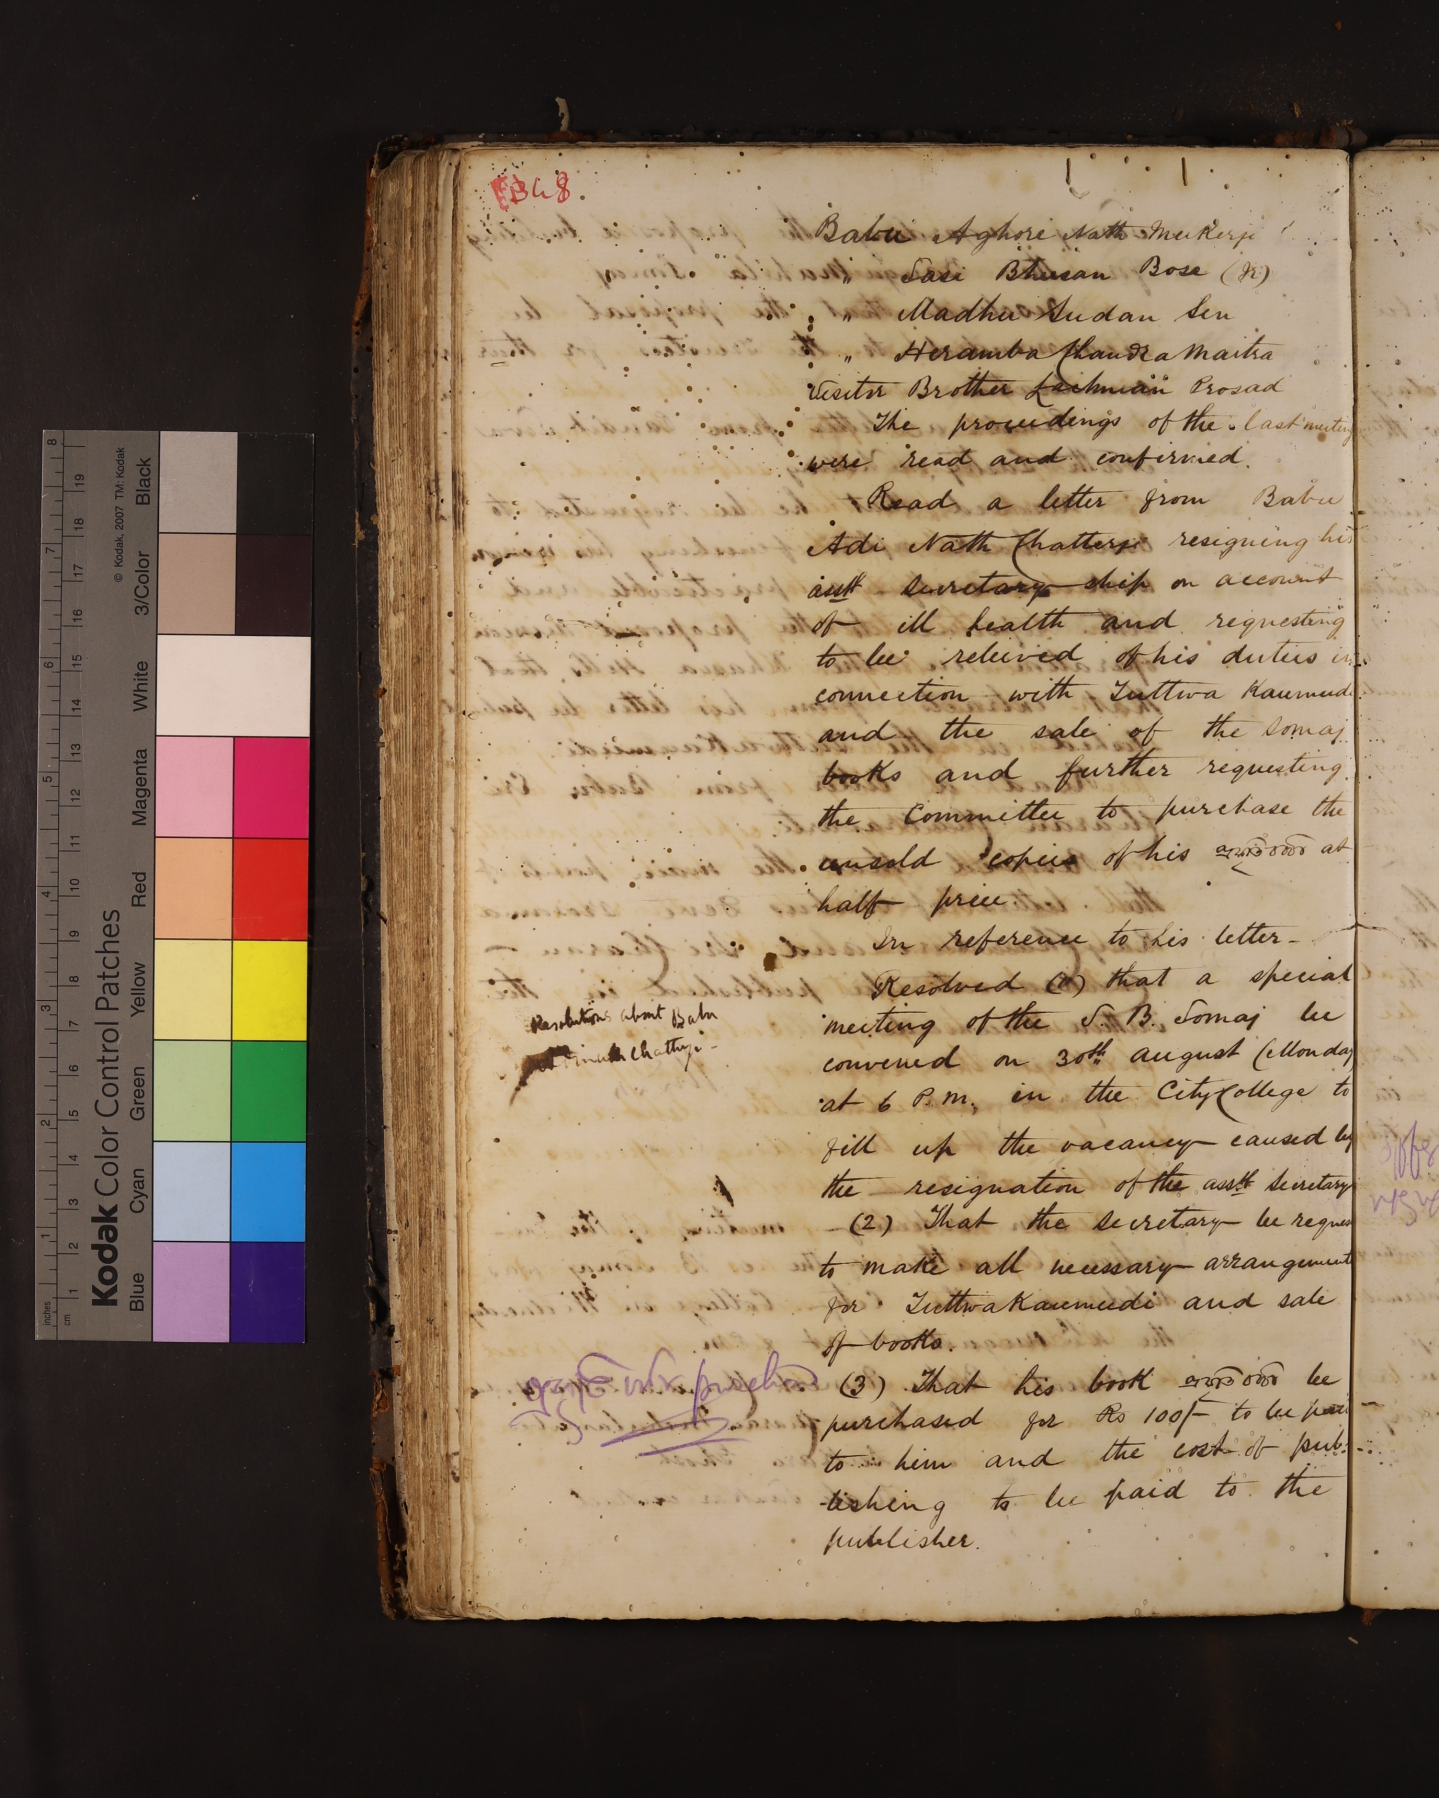 Babu Aghore Nath Mukerji
" Sasi Bhusan Bose (Jr)
" Madhu Sudan Sen
" Heramba Chandra Maitra
Visitor Brother Lachman Prosad
The proceedings of the last meeting
were read and confirmed.
Read a letter from Babu
Adi Nath Chatterji resigning his
asstt secretary ship on account
of ill health and requesting
to be releived of his duties in
connection with Tuttwa Kaumudi
and the sale of the Somaj
books and further requesting
the Committee to purchase the
unsold copies of his at
half price.
In reference to his letter-
Resolved (1) that a special
meeting of the S. B. Somaj be
convened on 30th August (Monday
at 6 P.M. in the City College to
fill up the vacancy caused by
the resignation of the asstt Secretary
(2) That the Secretary be reques
to make all necessary arrangements
for Tuttwa Kaumudi and sale
of books.
(3) That his book be
purchased for Rs 100/- to be paid
to him and the cost of pub-
lishing to be paid to the
publisher.
Resolutions about Babu
Chatterji-
Kodak Color Control Patches
© Kodak, 2007 TM: Kodak
Blue Cyan Green Yellow Red Magenta White 3/Color Black
inches 1 2 3 4 5 6 7 8
cm 1 2 3 4 5 6 7 8 9 10 11 12 13 14 15 16 17 18 19